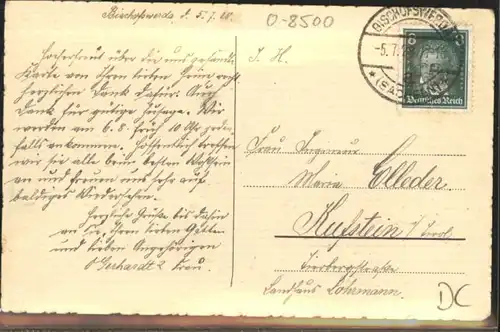 Bischofswerda, d. 5.7.28.
O-8500
BISCHOFSWERDA
-5.7.
8 8
Deutsches Reich
Hocherfreut über die uns gesandte
Karte von Ihren lieben Heim recht
herzlichen Dank dafür. Auch
Dank für gütige Zusage. Wir
werden am 6.8. früh 10 Uhr jeden-
falls ankommen. Hoffentlich treffen
wir sie alle beim besten Wohlsein
an und freuen uns sehr auf
baldiges Wiedersehen.
Herzliche Grüße bis dahin
an Sie, Ihren lieben Gatten
und lieben Angehörigen
Gerhardt & Frau.
Frau
Maria Elleder
Kufstein / Tirol
Landhaus Lohrmann.
DC